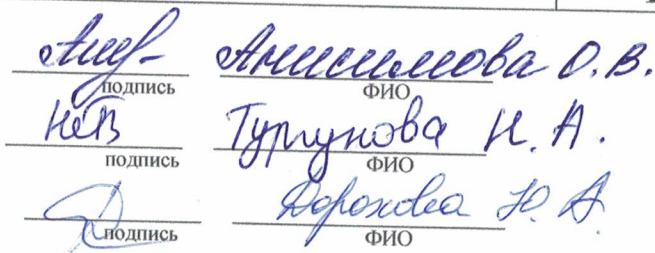 Анисимова О.В.
подпись ФИО
Тургунова Н.А.
подпись ФИО
Дорохова Ю.А.
подпись ФИО